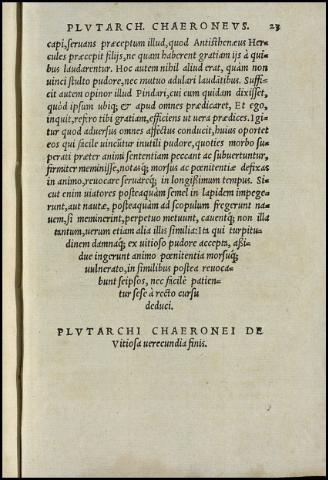 PLVTARCH. CHAERONEVS. 23
capi, seruans præceptum illud, quod Antisthenæus Her-
cules præcepit filijs, ne quam haberent gratiam ijs à qui-
bus laudarentur. Hoc autem nihil aliud erat, quàm non
uinci stulto pudore, nec mutuo adulari laudātibus. Suffi-
cit autem opinor illud Pindari, cui cum quidam dixisset,
quòd ipsum ubiq; & apud omnes prædicaret, Et ego,
inquit, refero tibi gratiam, efficiens ut uera prædices. Igi-
tur quod aduersus omnes affectus conducit, huius oportet
eos qui facile uincūtur inutili pudore, quoties morbo su-
perati præter animi sententiam peccant ac subuertuntur,
firmiter meminisse, notasq; morsus ac pœnitentiæ defixas
in animo, reuocare seruareq; in longissimum tempus. Si-
cut enim uiatores posteaquàm semel in lapidem impege-
runt, aut nautæ, posteaquàm ad scopulum fregerunt na-
uem, si meminerint, perpetuo metuunt, cauentq; non illa
tantum, uerum etiam alia illis similia: Ita qui turpitu-
dinem damnaq; ex uitioso pudore accepta, aßi-
due ingerunt animo pœnitentia morsuq;
uulnerato, in similibus postea reuoca-
bunt seipsos, nec facilè patien-
tur sese à recto cursu
deduci.
PLVTARCHI CHAERONEI DE
Vitiosa uerecundia finis.